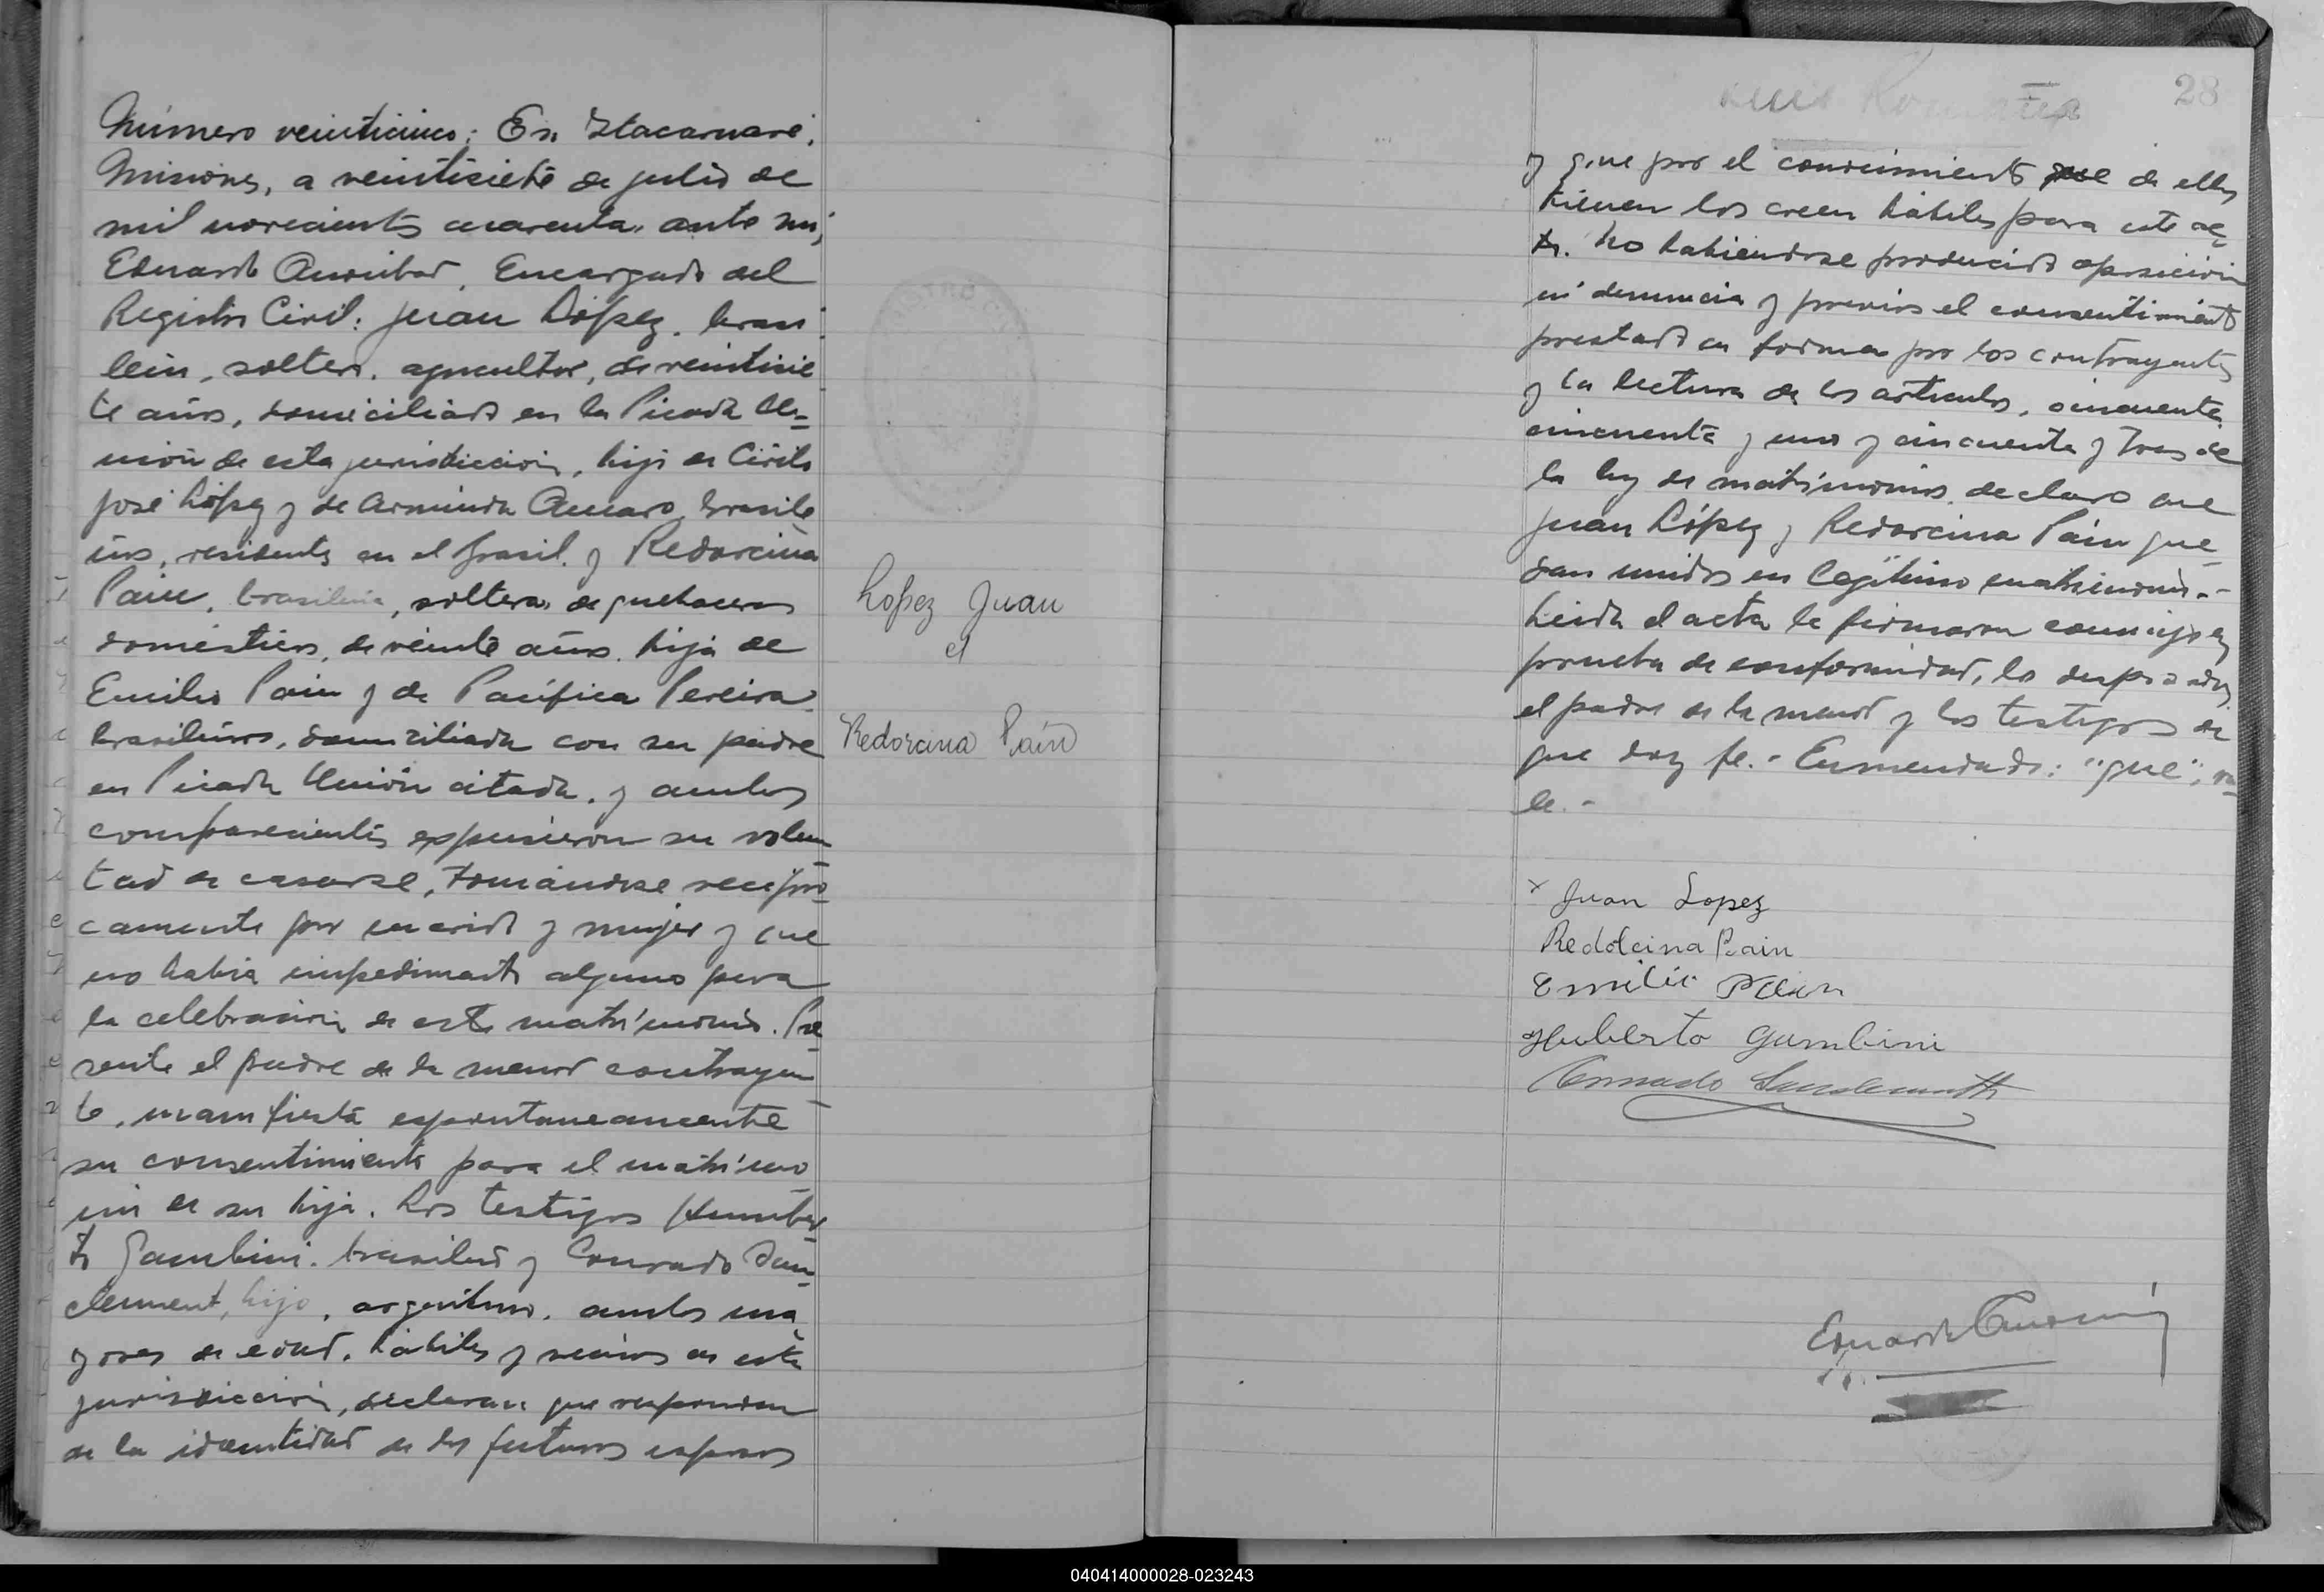 Número veinticinco: En Itacaruaré,
Misiones, a veintisiete de julio de
mil novecientos cuarenta, ante mí,
Eduardo, Encargado del
Registro Civil: Juan López, brasi
leño, soltero, agricultor, de veintisie
te años, domiciliado en la Picada U-
nión de esta jurisdicción, hijo de Cirilo
José López y de Arminda Amaro, brasile
ños, residentes en el Brasil. y Redorcina
Pain, brasileña, soltera, de quehaceres
domésticos, de veinte años, hija de
Emilio Pain y de Pacífica Pereira,
brasileños, domiciliada con su padre
en Picada Unión citada, y ambos
comparecientes expusieron su volun
tad de casarse, tomándose recípro
camente por marido y mujer y que
no había impedimento alguno para
la celebración de este matrimonio. Pre
sente el padre de la menor contrayen
te, manifiesta espontaneamente
su consentimiento para el matrimo
nio de su hija. Los testigos Humber
to Gambini, brasileño y Conrado San
clement, hijo, argentino, ambos ma
yores de edad, hábiles y vecinos de esta
jurisdicción, declaran que responden
de la identidad de los futuros esposos
Lopez Juan
c/
Redorcina Paín
28
y que por el conocimiento que de ellos
tienen los creen hábiles para este ac
to. No habiéndose producido oposición
ni denuncia y previos el consentimiento
prestado en forma por los contrayentes
y la lectura de los artículos, cincuenta,
cincuenta y uno y cincuenta y tres de
la ley de matrimonio, declaro que
Juan López y Redorcina Pain que
dan unidos en legítimo matrimonio.-
Leída el acta la firmaron conmigo en
prueba de conformidad, los desposados,
el padre de la menor y los testigos de
que doy fe.- Enmendado: "que", va
le.-
x Juan Lopez
Redolcina Pain
Emilio Pain
Humberto Gambini
Conrado
Eduardo
040414000028-023243